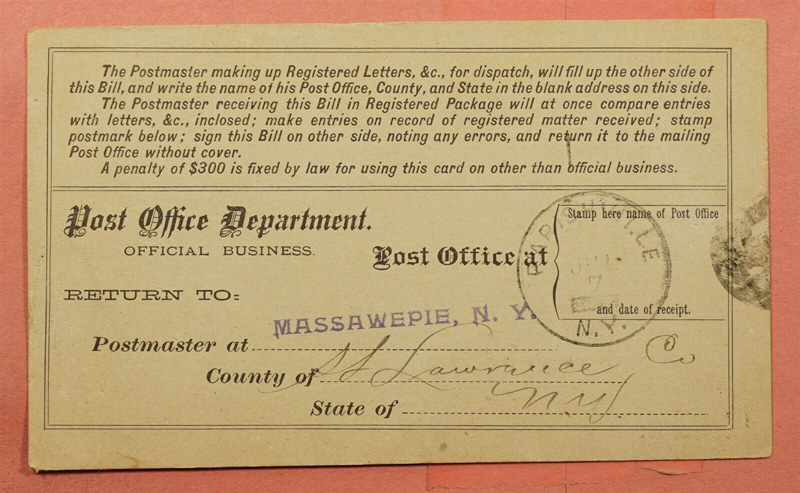 The Postmaster making up Registered Letters, &c., for dispatch, will fill up the other side of
this Bill, and write the name of his Post Office, County, and State in the blank address on this side.
The Postmaster receiving this Bill in Registered Package will at once compare entries
with letters, &c., inclosed; make entries on record of registered matter received; stamp
postmark below; sign this Bill on other side, noting any errors, and return it to the mailing
Post Office without cover.
A penalty of $300 is fixed by law for using this card on other than official business.
Post Office Department.
OFFICIAL BUSINESS.
Post Office at
Stamp here name of Post Office
and date of receipt.
PARISHVILLE
7
N.Y.
RETURN TO:
MASSAWEPIE, N. Y.
Postmaster at
County of St Lawrance Co
State of NY